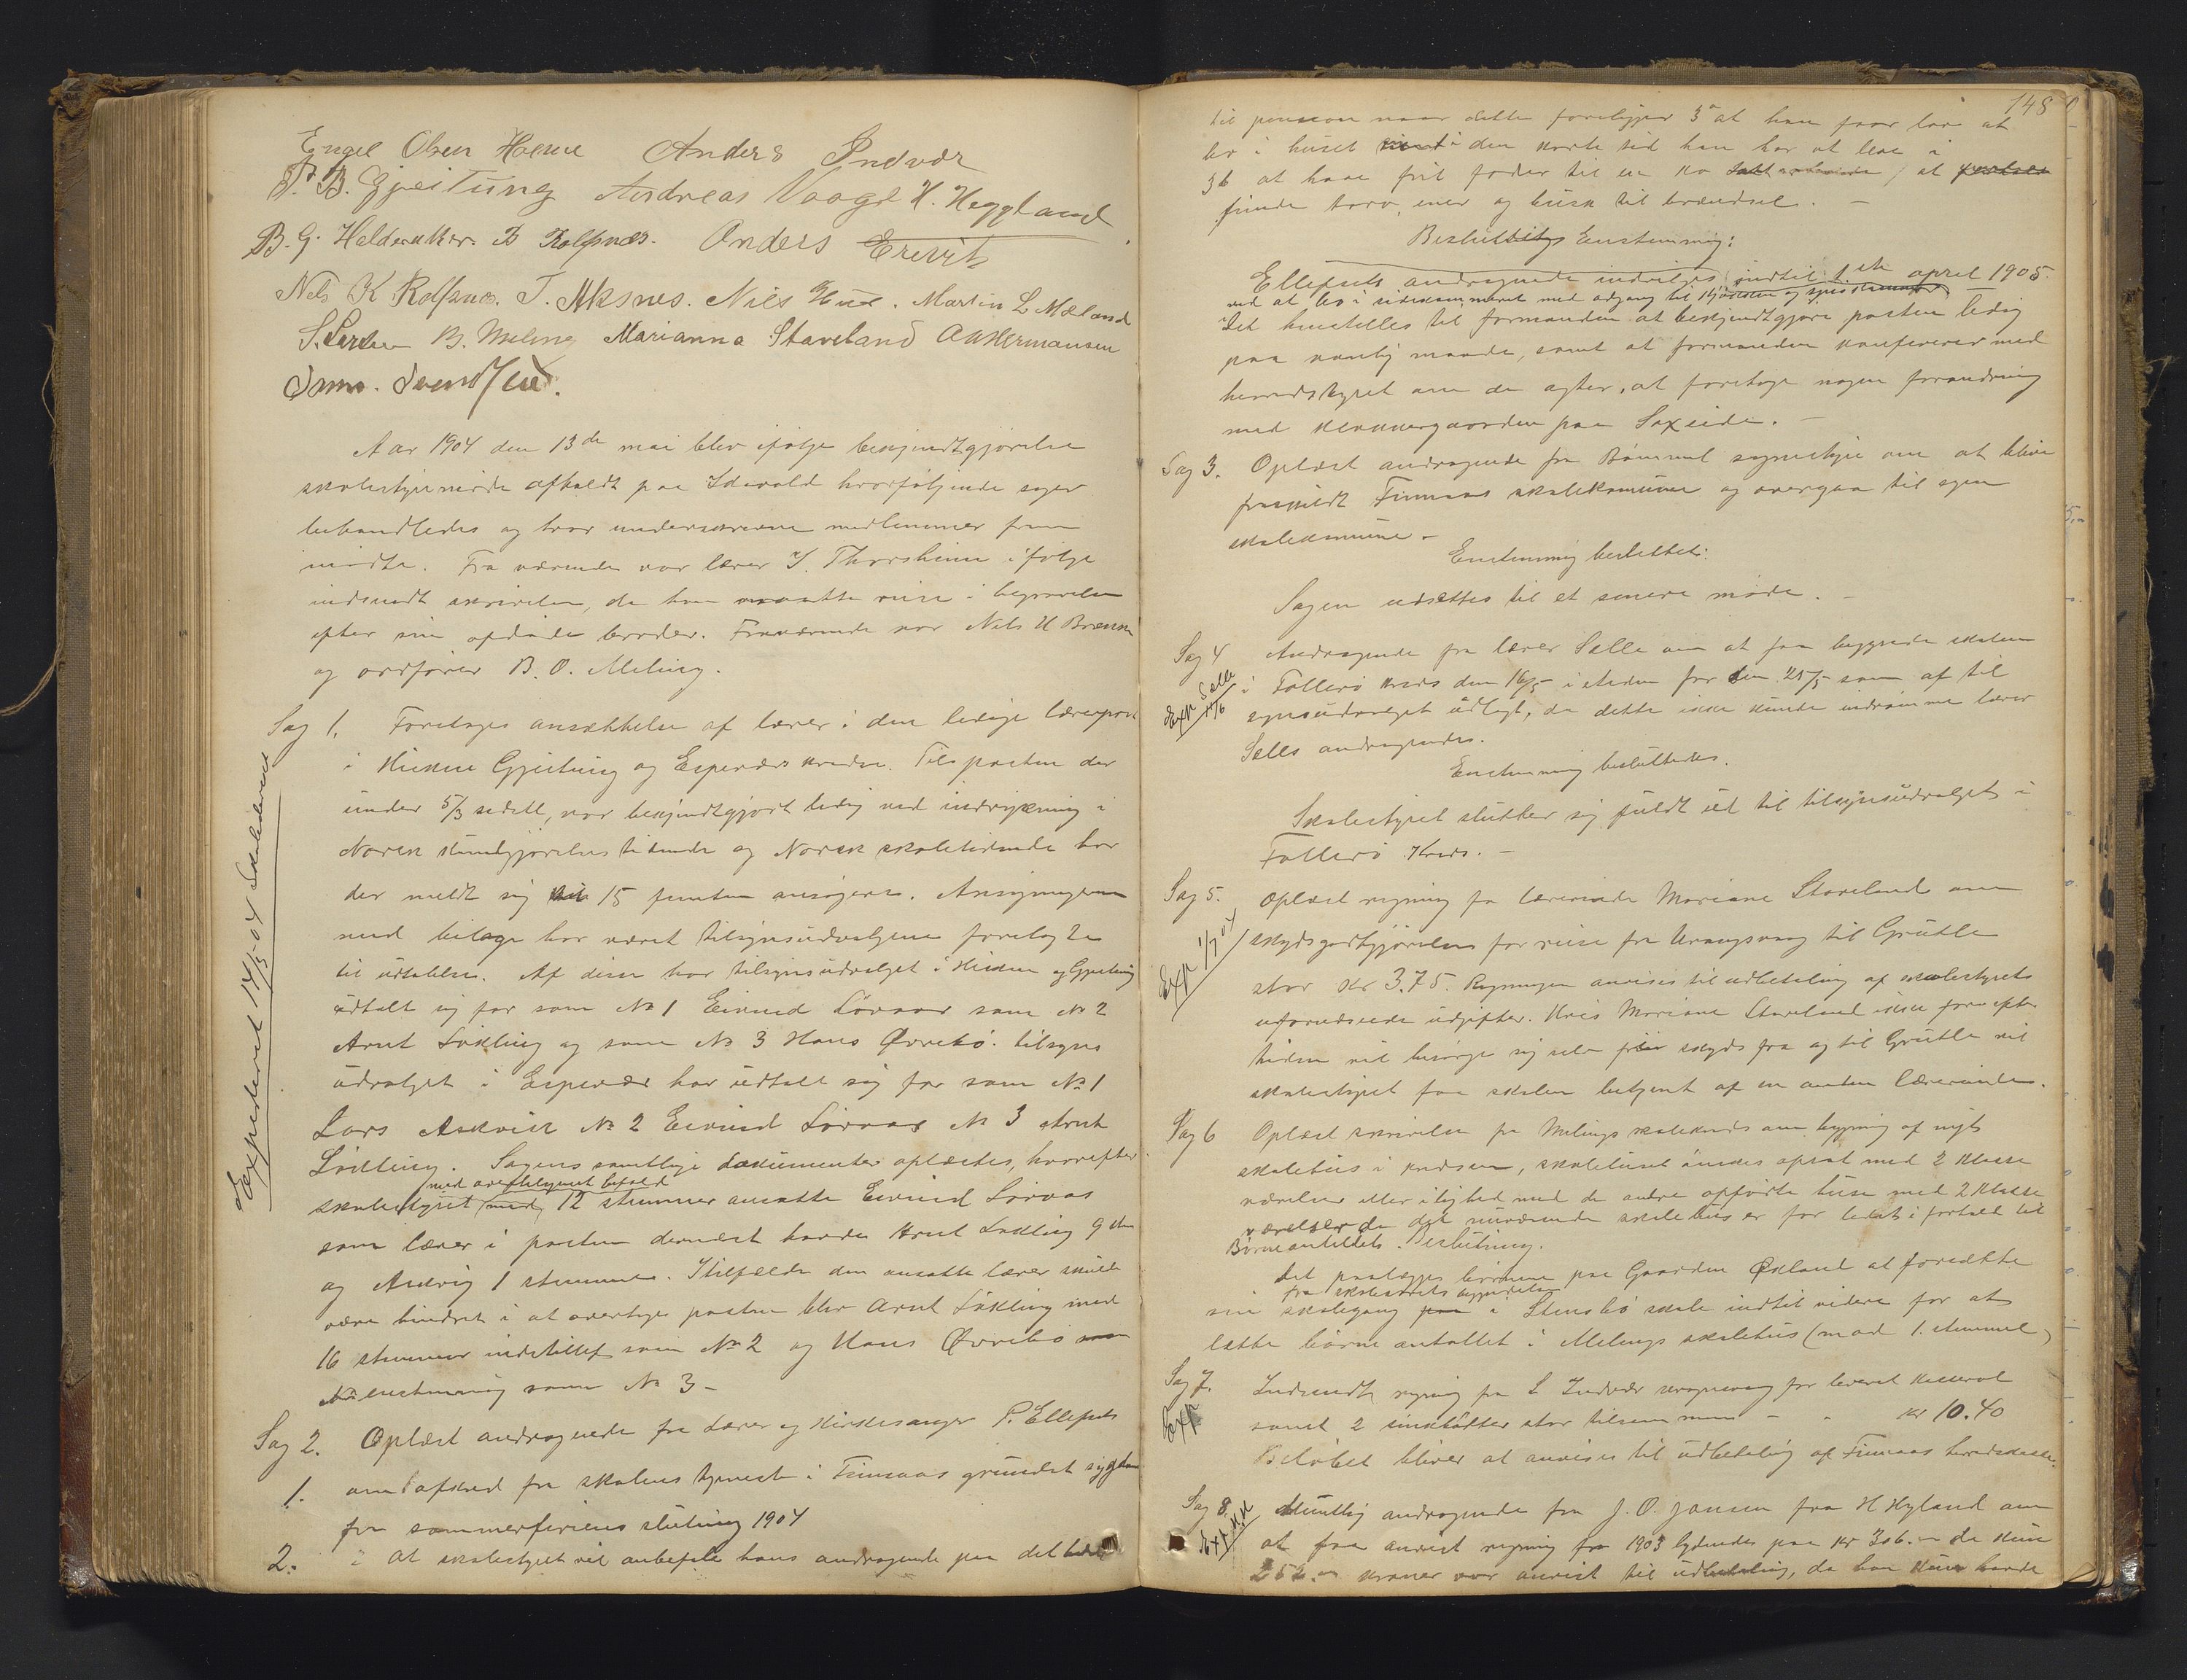 Engel Olsen Holme Anders Indvær
P. B. Gjeitung Andreas Vaage H. Heggland
B. G. Heldeaker. B Rolfsnæs. Anders
Nils K Rolfsnes. T. Aksnes. Nils Hus. Martin L Mæland
B. Meling Marianna Staveland O A Hermansen
Svendsen.
Aar 1904 den 13de mai blev ifølge bekjendtgjørelse
skolestyremøde afholdt paa Idavold hvorfølgende sager
behandledes og hvor underskrevne medlemmer frem
mødte. Fraværende var lærer I. Thorsheim ifølge
indsendt skrivelse, da han maatte reise i begravelse
efter sin afdøde broder. Fraværende var Nils H
og ordfører B. O. Meling.
Expederet 14/5-04
Sag 1. Foretages ansættelse af lærer i den ledige lærerpost
i Hisken Gjeitung og Espevær kredse. Til posten der
under 5/3 sidstl, var bekjendtgjort ledig ved indrykning i
Norsk kundgjørelses tidende og Norsk skoletidende har
der meldt sig 15 femten ansøgere. Ansøgningerne
med bilage har været tilsynsudvalgene forelagte
til udtalelse. Af disse har tilsynsudvalget i Hisken og Gjeitung
udtalt sig for som No 1 Eivind Lørvas som No 2
Arnt Løkling og som No 3 Hans Øvrebø. Tilsyns
udvalget i Espevær har udtalt sig for som No 1
Lars Askvik No 2 Eivind Lørvas No 3 Arnt
Løkling. Sagens samtlige dokumenter oplæstes, hvorefter
med
skolestyret med 12 stemmer ansatte Eivind Lørvas
som lærer i posten dernæst havde Arnt Løkling 9
og Askvig 1 stemme. I tilfælde den ansatte lærer skulde
være hindret i at overtage posten blev Arnt Løkling med
16 stemmer indstillet som No 2 og Hans Øvrebø
enstemmig som No 3 -
Sag 2. Oplæst andragende fra Lærer og Kirkesanger P. Ellefsen
1. om afsked fra skolens tjeneste i Finnaas grundet sygdom
fra sommerferiens slutning 1904
2. at skolestyret vil anbefale hans andragende paa det
148
til pension naar dette foreligger 3a at han faar lov at
bo i huset i den korte tid han har at leve i
3b at have frit foder til en ko at
finde torv, ener og busk til brændsel. -
Beslutning Enstemmig:
Ellefsens andragende indvilges indtil 1ste april 1905
ved at bo i sidekammeret med adgang til kjøkken og
Det henstilles til formanden at bekjendtgjøre posten ledig
paa vanlig maade, samt at formanden konfererer med
herredstyret om de agter, at foretage nogen forandring
med klokkergaarden paa Sæxeide. -
Sag 3. Oplæst andragende fra Bømmel sognestyre om at blive
fraskildt Finnaas skolekomune og overgaa til egen
skolekomune. -
Enstemmig besluttet:
Sagen udsættes til et senere møde. -
Sag 4 Andragende fra lærer Sælle om at faa begynde skolen
Exp Sælle 14/6
i Follerø kreds den 16/5 i steden for den 25/5 som af til
synsudvalget udlagt, da dette ikke kunde indrømme lærer
Sælles andragende.
Enstemmig besluttedes.
Skolestyret slutter sig fuldt ud til tilsynsudvalget i
Follerø Kreds. -
Sag 5. Oplæst regning fra lærerinde Mariane Staveland om
Exp 1/7 04
skydsgodtgjørelse for reise fra Urangsvaag til Grutle
stor kr 3.75. Regningen anvises til udbetaling af skolestyrets
uforudseede udgifter. Hvis Mariane Staveland ikke for efter
tiden vil besørge sig selv skyds fra og til Grutle vil
skolestyret faa skolen betjent af en anden lærerinde.
Sag 6 Oplæst skrivelse fra Melings skolekreds om bygning af nyt
skolehus i kredsen, skolehuset ønskes opsat med 2 klasse
værelser eller i lighed med de andre opførte huse med 2 klasse
værelser da det nuværende skolehus er for lidet i forhold til
Børneantallet. Beslutning.
Det paalægges børnene paa Gaarden Økland at foresætte
fra skoleaarets begyndelse
sin skolegang i Stensbø skole indtil videre for at
lætte børneantallet i Melings skolehus (mod 1. stemme)
Sag 7. Indsendt regning fra L Indvær for leveret
Exp
samt 2 stor tilsammen - - kr 10.40
Beløbet bliver at anvises til udbetaling af Finnaas herredskasse.
Sag 8. Muntlig andragende fra J. O. Jansen fra H Hyland om
Exp
at faa anvist regning fra 1903 lydende paa kr 306.- da kun
252.- kroner var anvist til udbetaling, da han kun havde